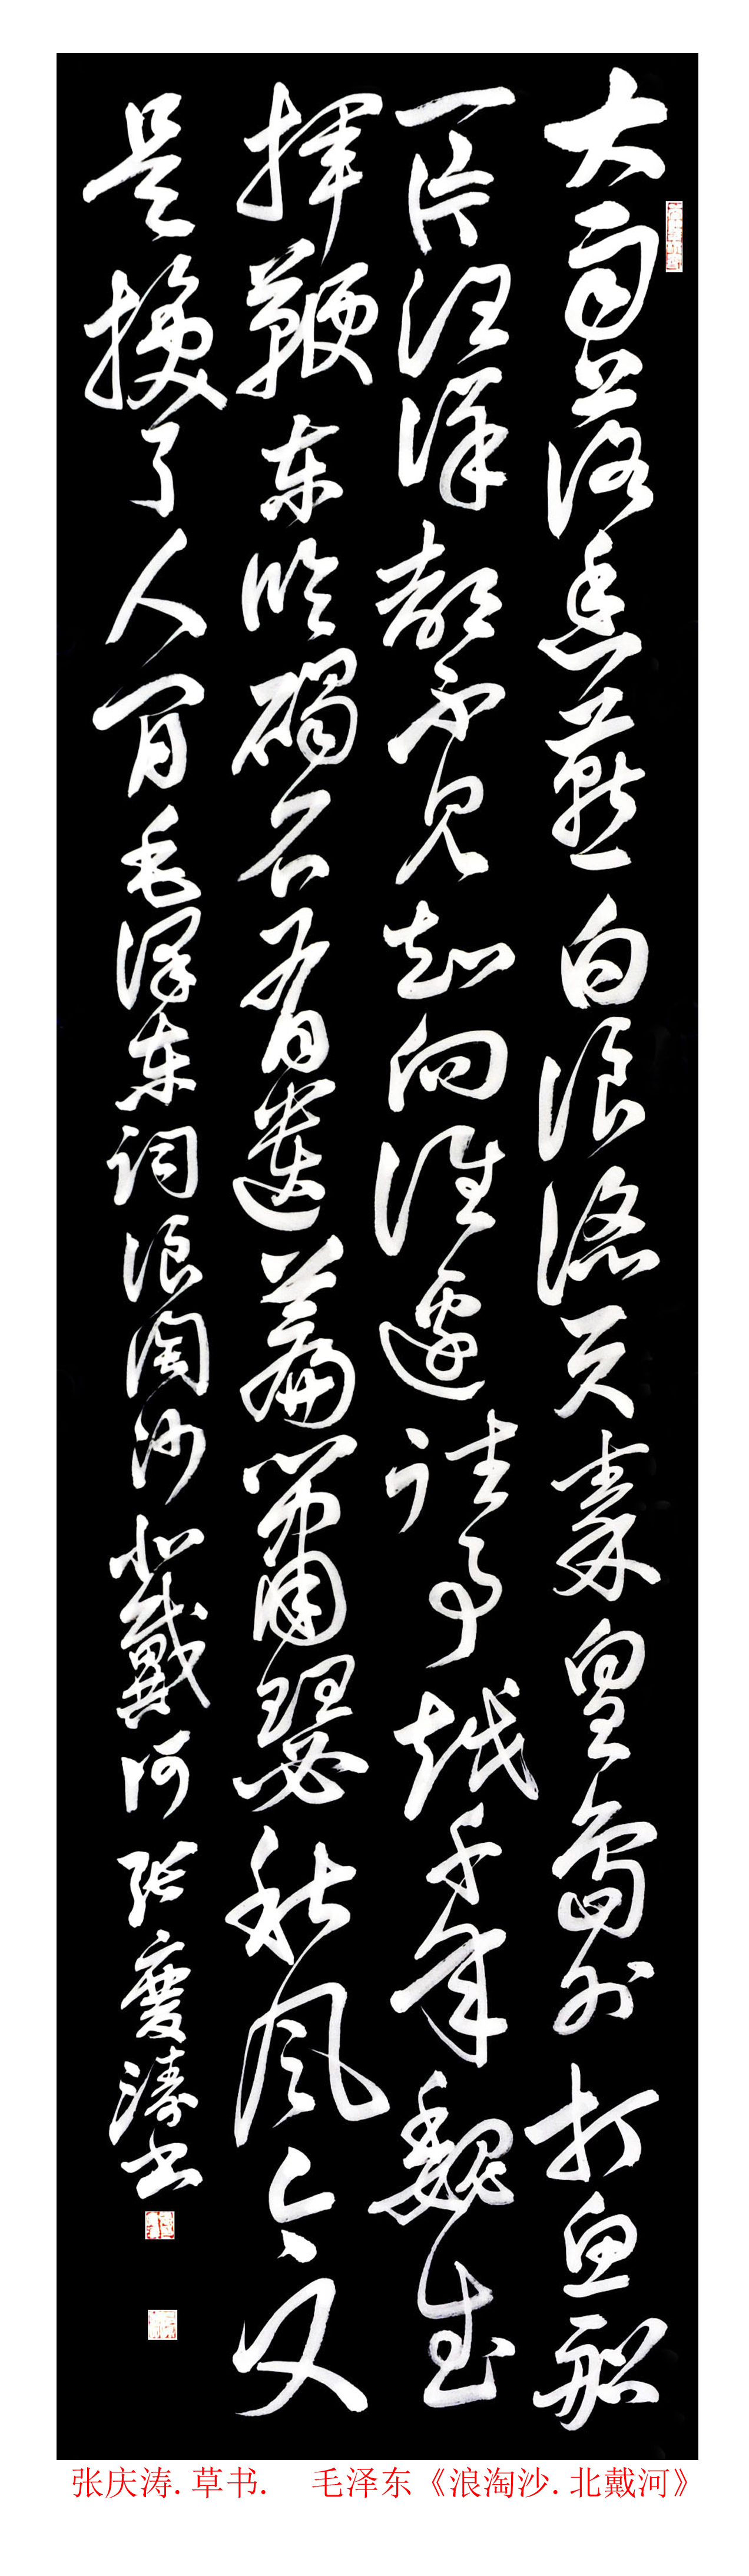 大雨落幽燕白浪滔天秦皇島外打鱼船
一片汪洋都不见知向誰邊往事越千年魏武
揮鞭东临碣石有遺篇蕭瑟秋风今又
是换了人间毛泽东词浪淘沙北戴河张慶濤书
张庆涛.草书. 毛泽东《浪淘沙.北戴河》